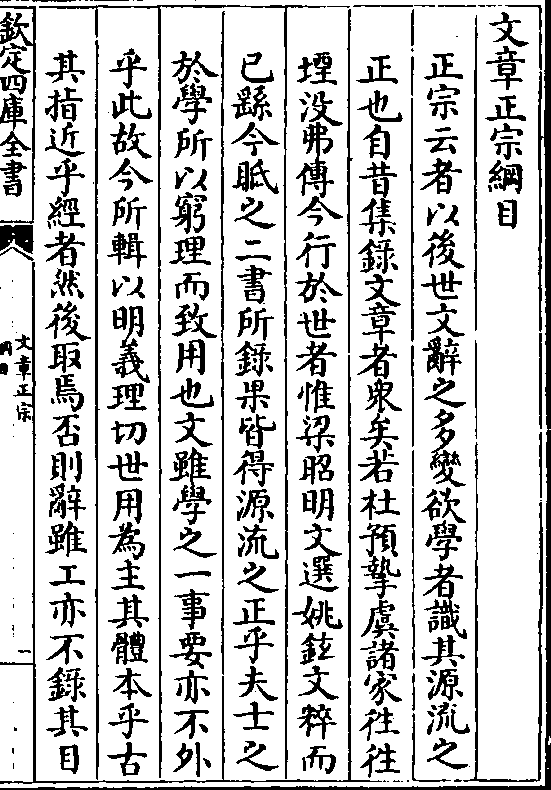 文章正宗綱目
正宗云者以後世文辭之多變欲學者識其源流之
正也自昔集錄文章者衆矣若杜預摯虞諸家往往
堙没弗傳今行於世者惟梁昭明文選姚鉉文粹而
已繇今眂之二書所錄果皆得源流之正乎夫士之
於學所以窮理而致用也文雖學之一事要亦不外
乎此故今所輯以明義理切世用為主其體本乎古
其指近乎經者然後取焉否則辭雖工亦不錄其目
欽定四庫全書
文章正宗
綱目
一